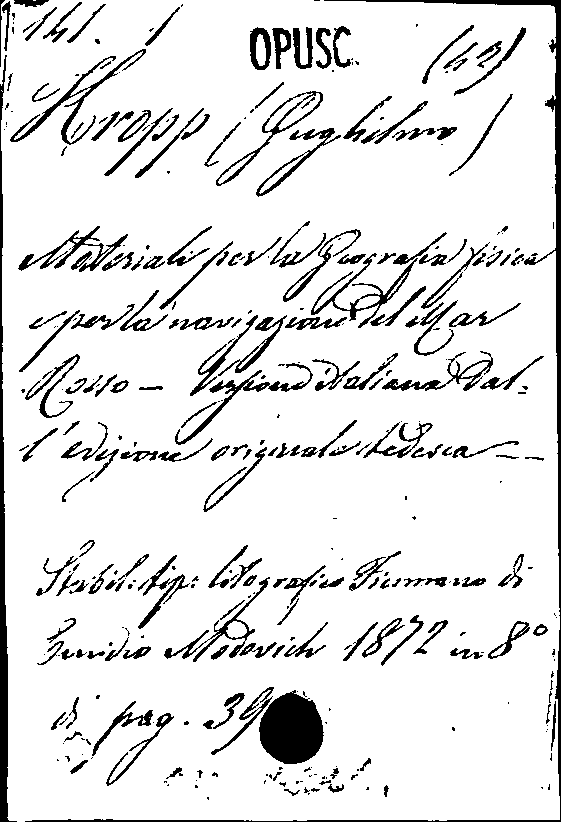 141. 1
OPUSC. (42)
Kropp (Guglielmo)
Materiali per la Geografia fisica
e per la navigazione del Mar
Rosso — Versione italiana dal-
l'edizione originale tedesca —
Stabil: tip: litografico Fiumano di
Emidio Mohovich 1872 in 8°
di pag. 39